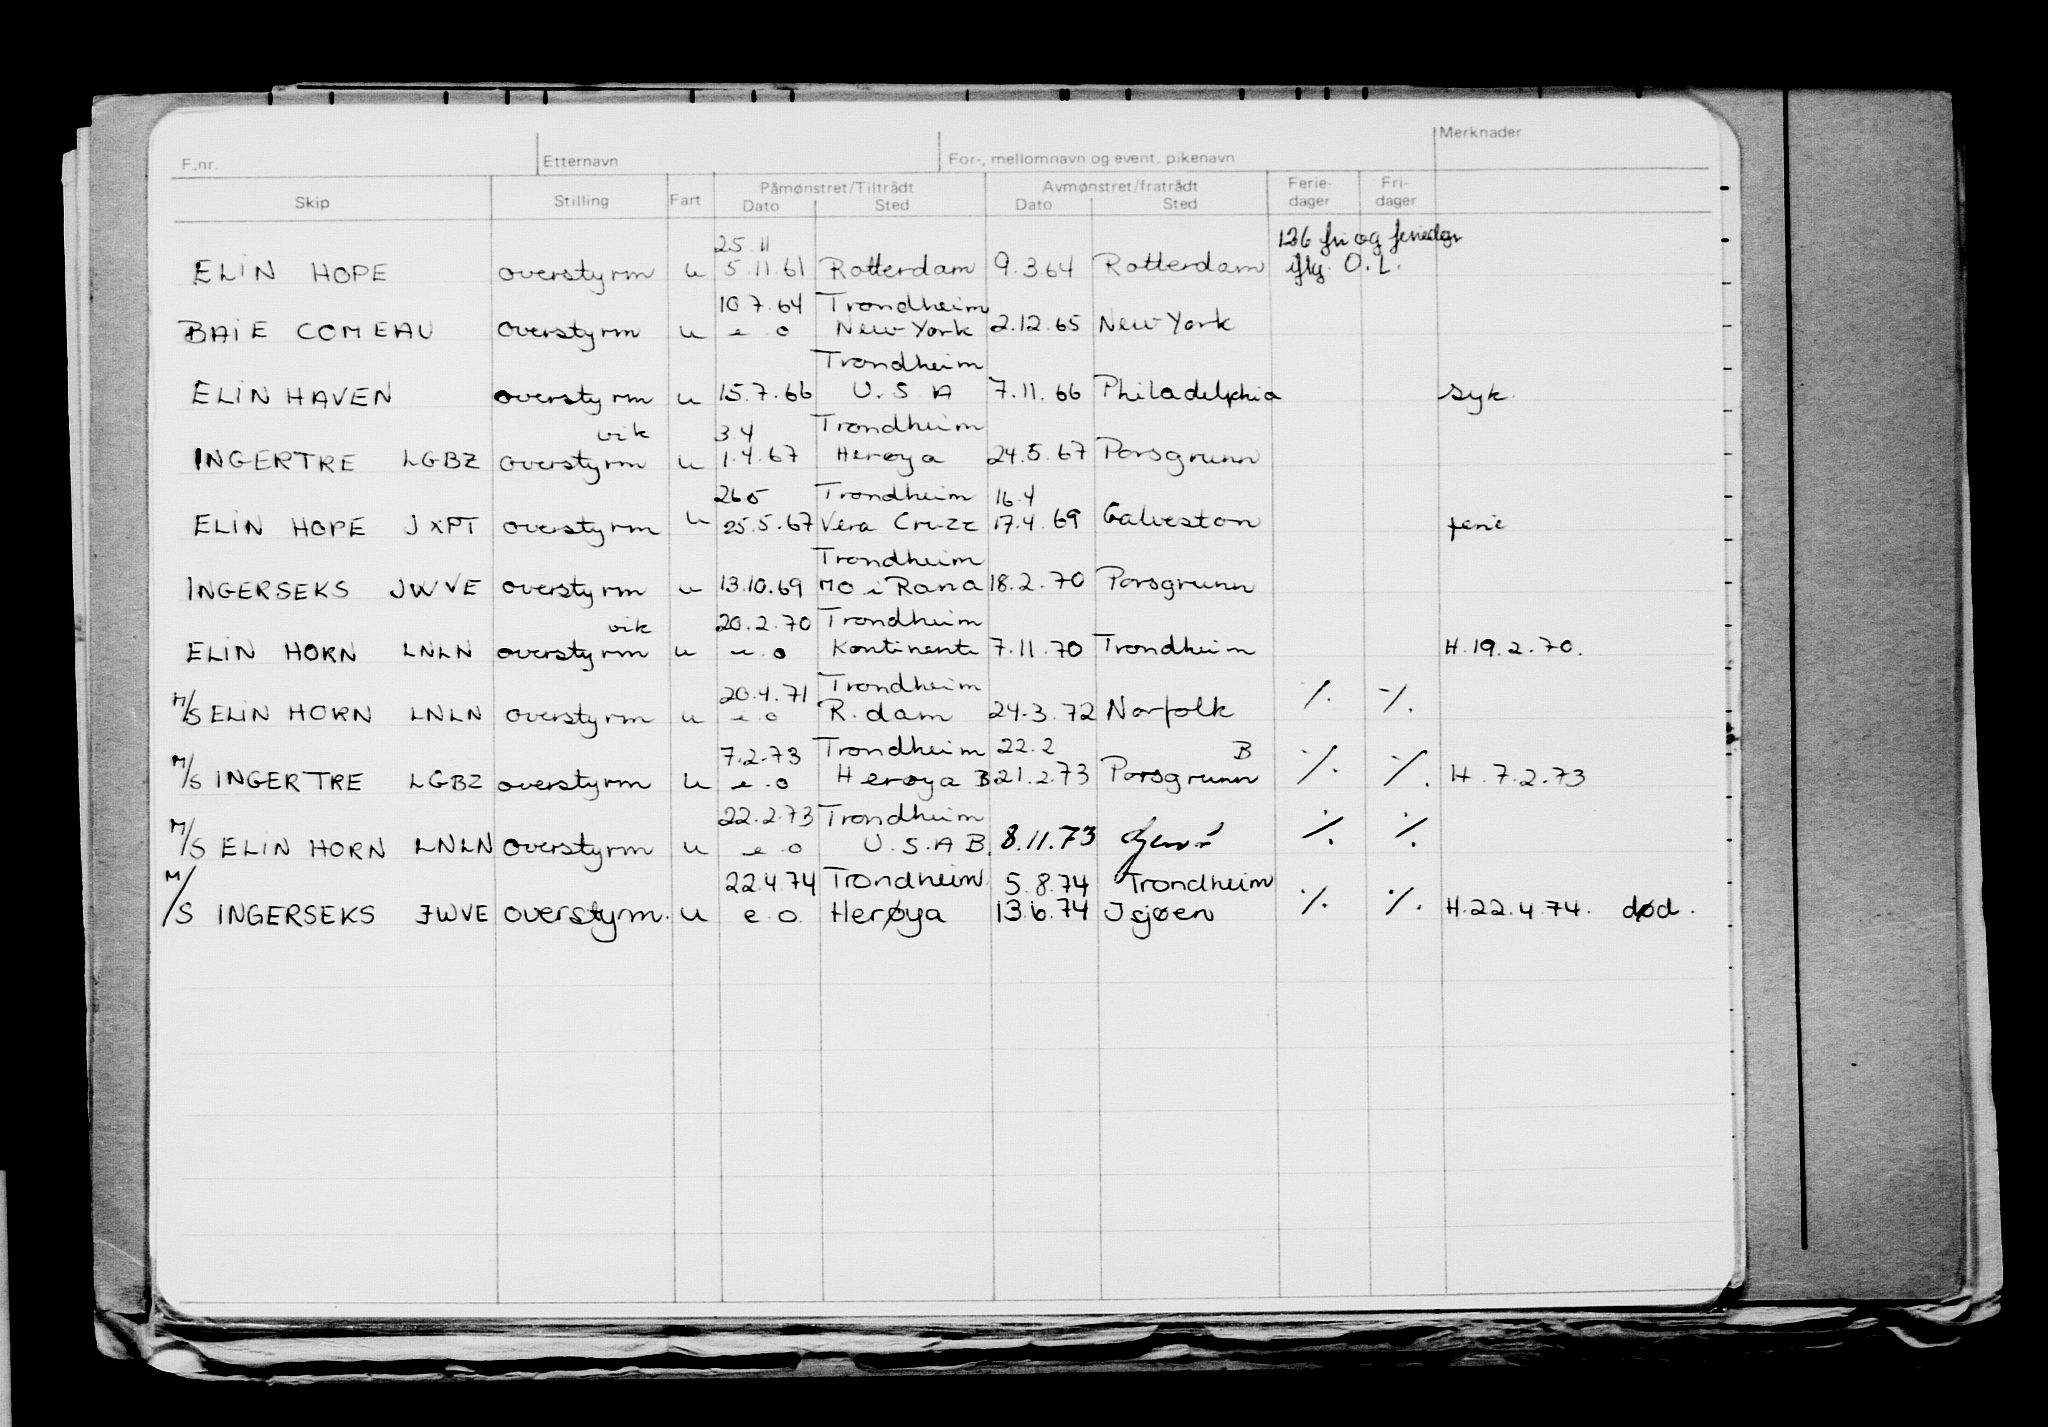 F.nr. Etternavn For-, mellomnavn og event. pikenavn Merknader
Skip Stilling Fart Påmønstret/Tiltrådt Avmønstret/fratrådt Ferie- Fri-
Dato Sted Dato Sted dager dager
25 11 126 fri og feriedgr
ELIN HOPE overstyrm u 5.11.61 Rotterdam 9.3.64 Rotterdam iflg. O.L.
10.7.64 Trondheim
BAIE COMEAU overstyrm u e.o New York 2.12.65 New York
Trondheim
ELIN HAVEN overstyrm u 15.7.66 U.S.A 7.11.66 Philadelphia syk.
vik 3.4 Trondheim
INGERTRE LGBZ overstyrm u 1.4.67 Herøya 24.5.67 Porsgrunn
26 5 Trondheim 16.4
ELIN HOPE JXPT overstyrm u 25.5.67 Vera Cruzz 17.4.69 Galveston ferie
Trondheim
INGERSEKS JWVE overstyrm u 13.10.69 MO i Rana 18.2.70 Porsgrunn
vik 20.2.70 Trondheim
ELIN HORN LNLN overstyrm u e.o Kontinente 7.11.70 Trondheim H.19.2.70.
20.4.71 Trondheim
M/S ELIN HORN LNLN overstyrm u e.o R.dam 24.3.72 Norfolk ·/. ·/.
7.2.73 Trondheim 22.2 B
M/S INGERTRE LGBZ overstyrm u e.o Herøya B 21.2.73 Porsgrunn ·/. ·/. H.7.2.73
22.2.73 Trondheim
M/S ELIN HORN LNLN overstyrm u e.o U.S.A B. 8.11.73 ·/. ·/.
22.4.74 Trondheim 5.8.74 Trondheim
M/S INGERSEKS JWVE overstyrm. u e.o. Herøya 13.6.74 Isjøen ·/. ·/. H.22.4.74. død.